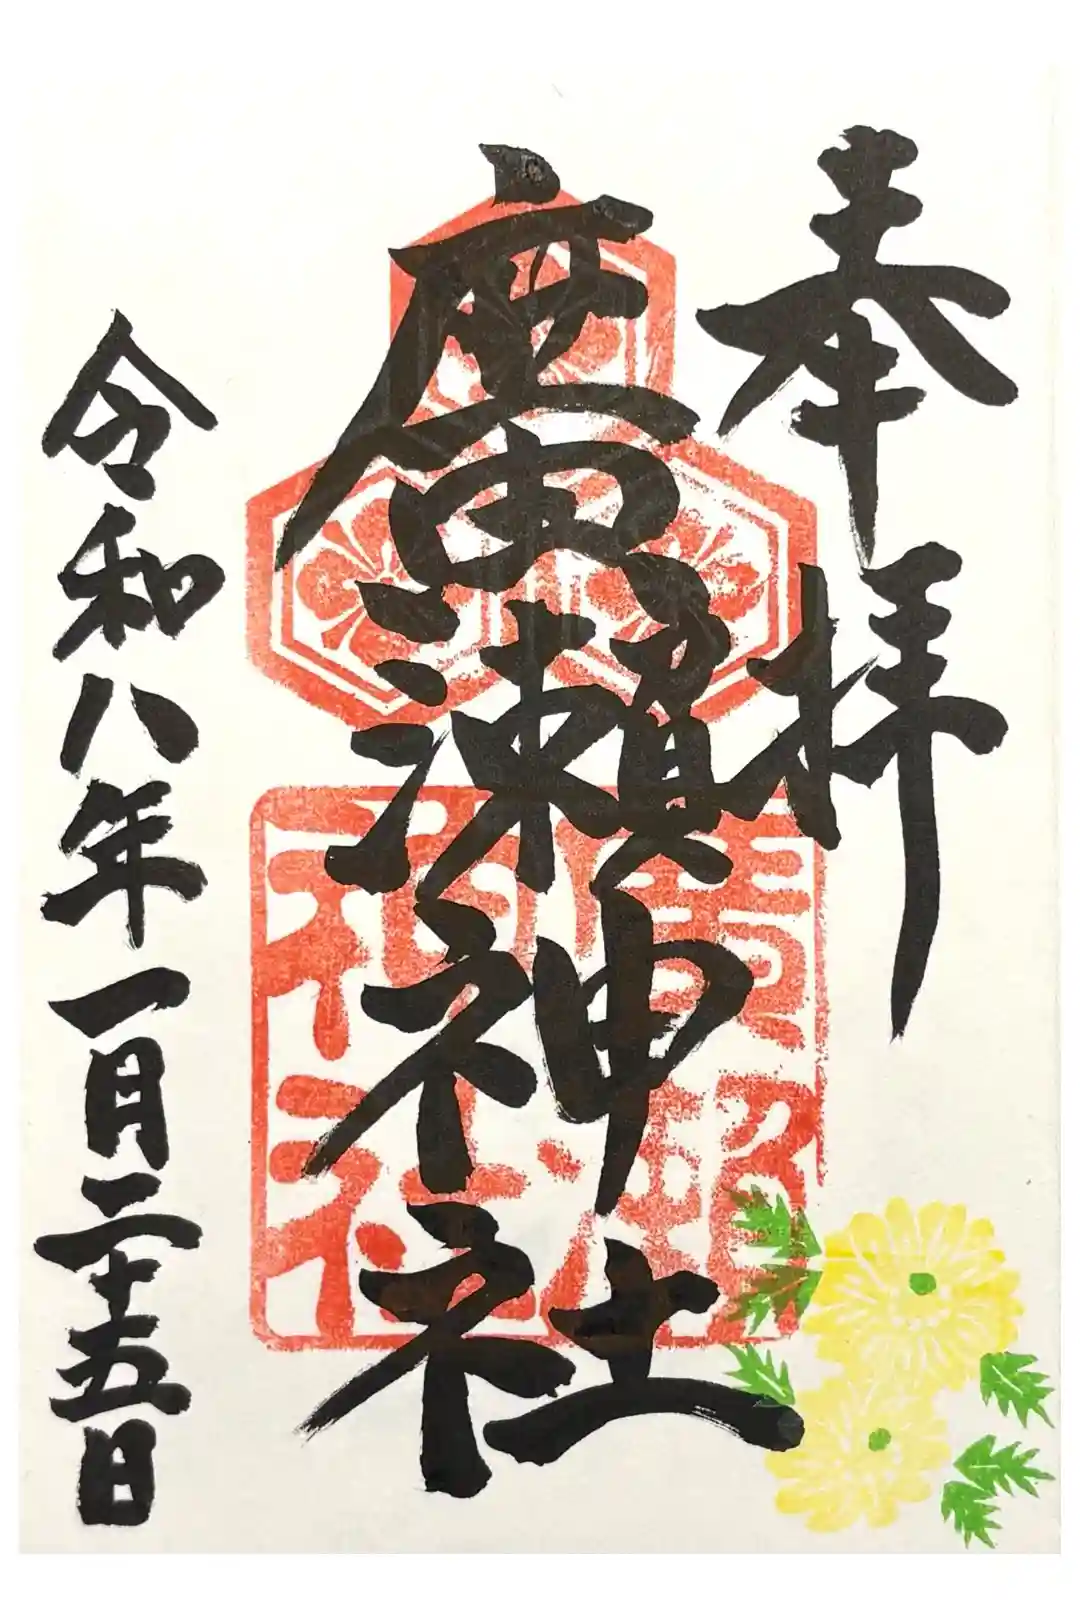 奉拝
廣瀬神社
令和八年一月二十五日
廣瀬神社